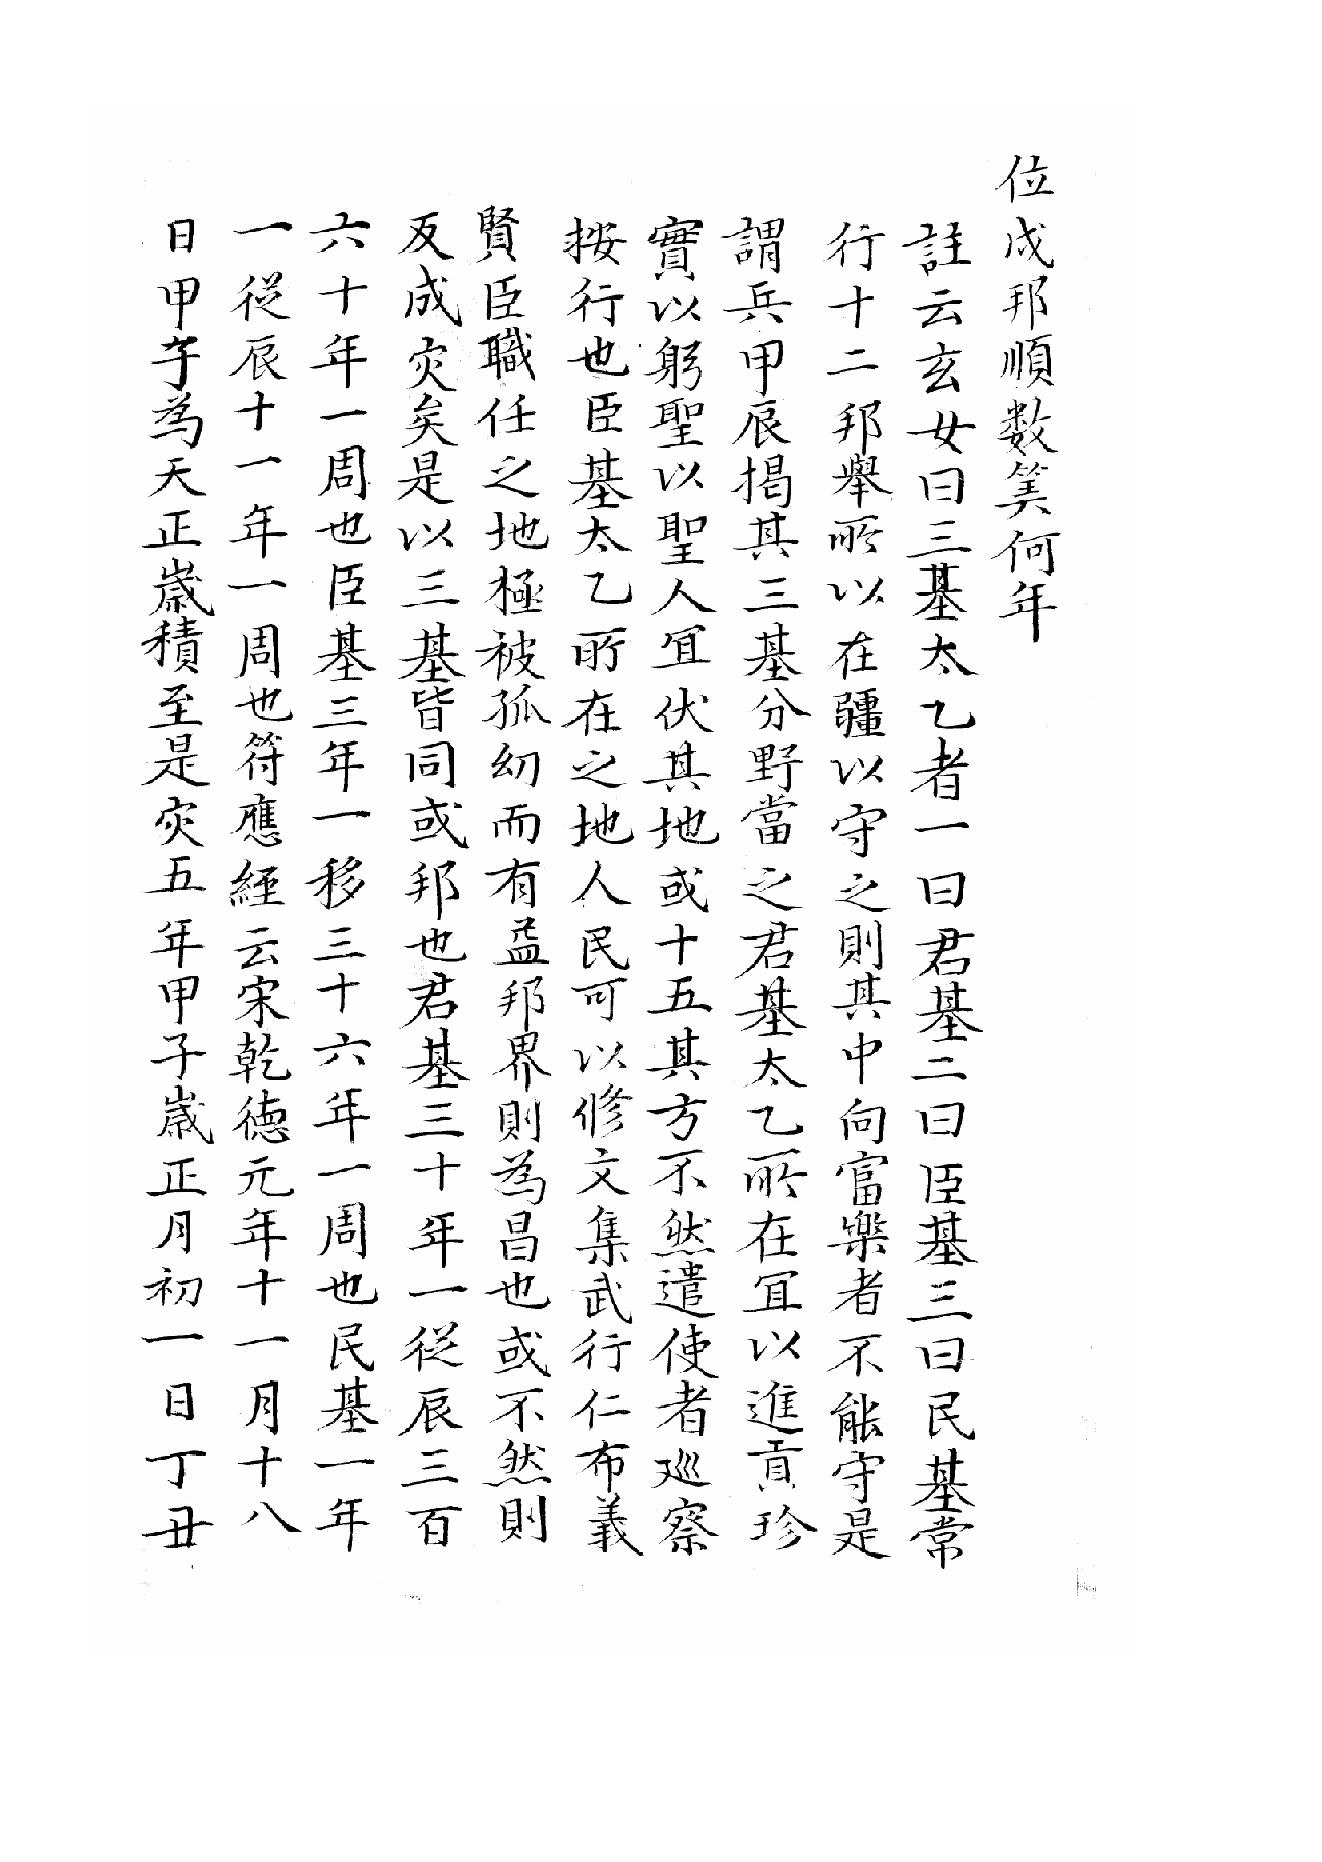 位戌邦順数筭何年
註云玄女曰三基太乙者一曰君基二曰臣基三曰民基常
行十二邦舉所以在疆以守之則其中向富樂者不能守是
謂兵甲辰揭其三基分野當之君基太乙所在冝以進貢珍
寳以躬聖以聖人冝伏其地或十五其方不然遣使者廵察
按行也臣基太乙所在之地人民可以修文集武行仁布義
賢臣職任之地極被孤幼而有益邦界則為昌也或不然則
反成灾矣是以三基皆同或邦也君基三十年一從辰三百
六十年一周也臣基三年一移三十六年一周也民基一年
一從辰十一年一周也符應經云宋乾德元年十一月十八
日甲子為天正歲積至是灾五年甲子歲正月初一日丁丑